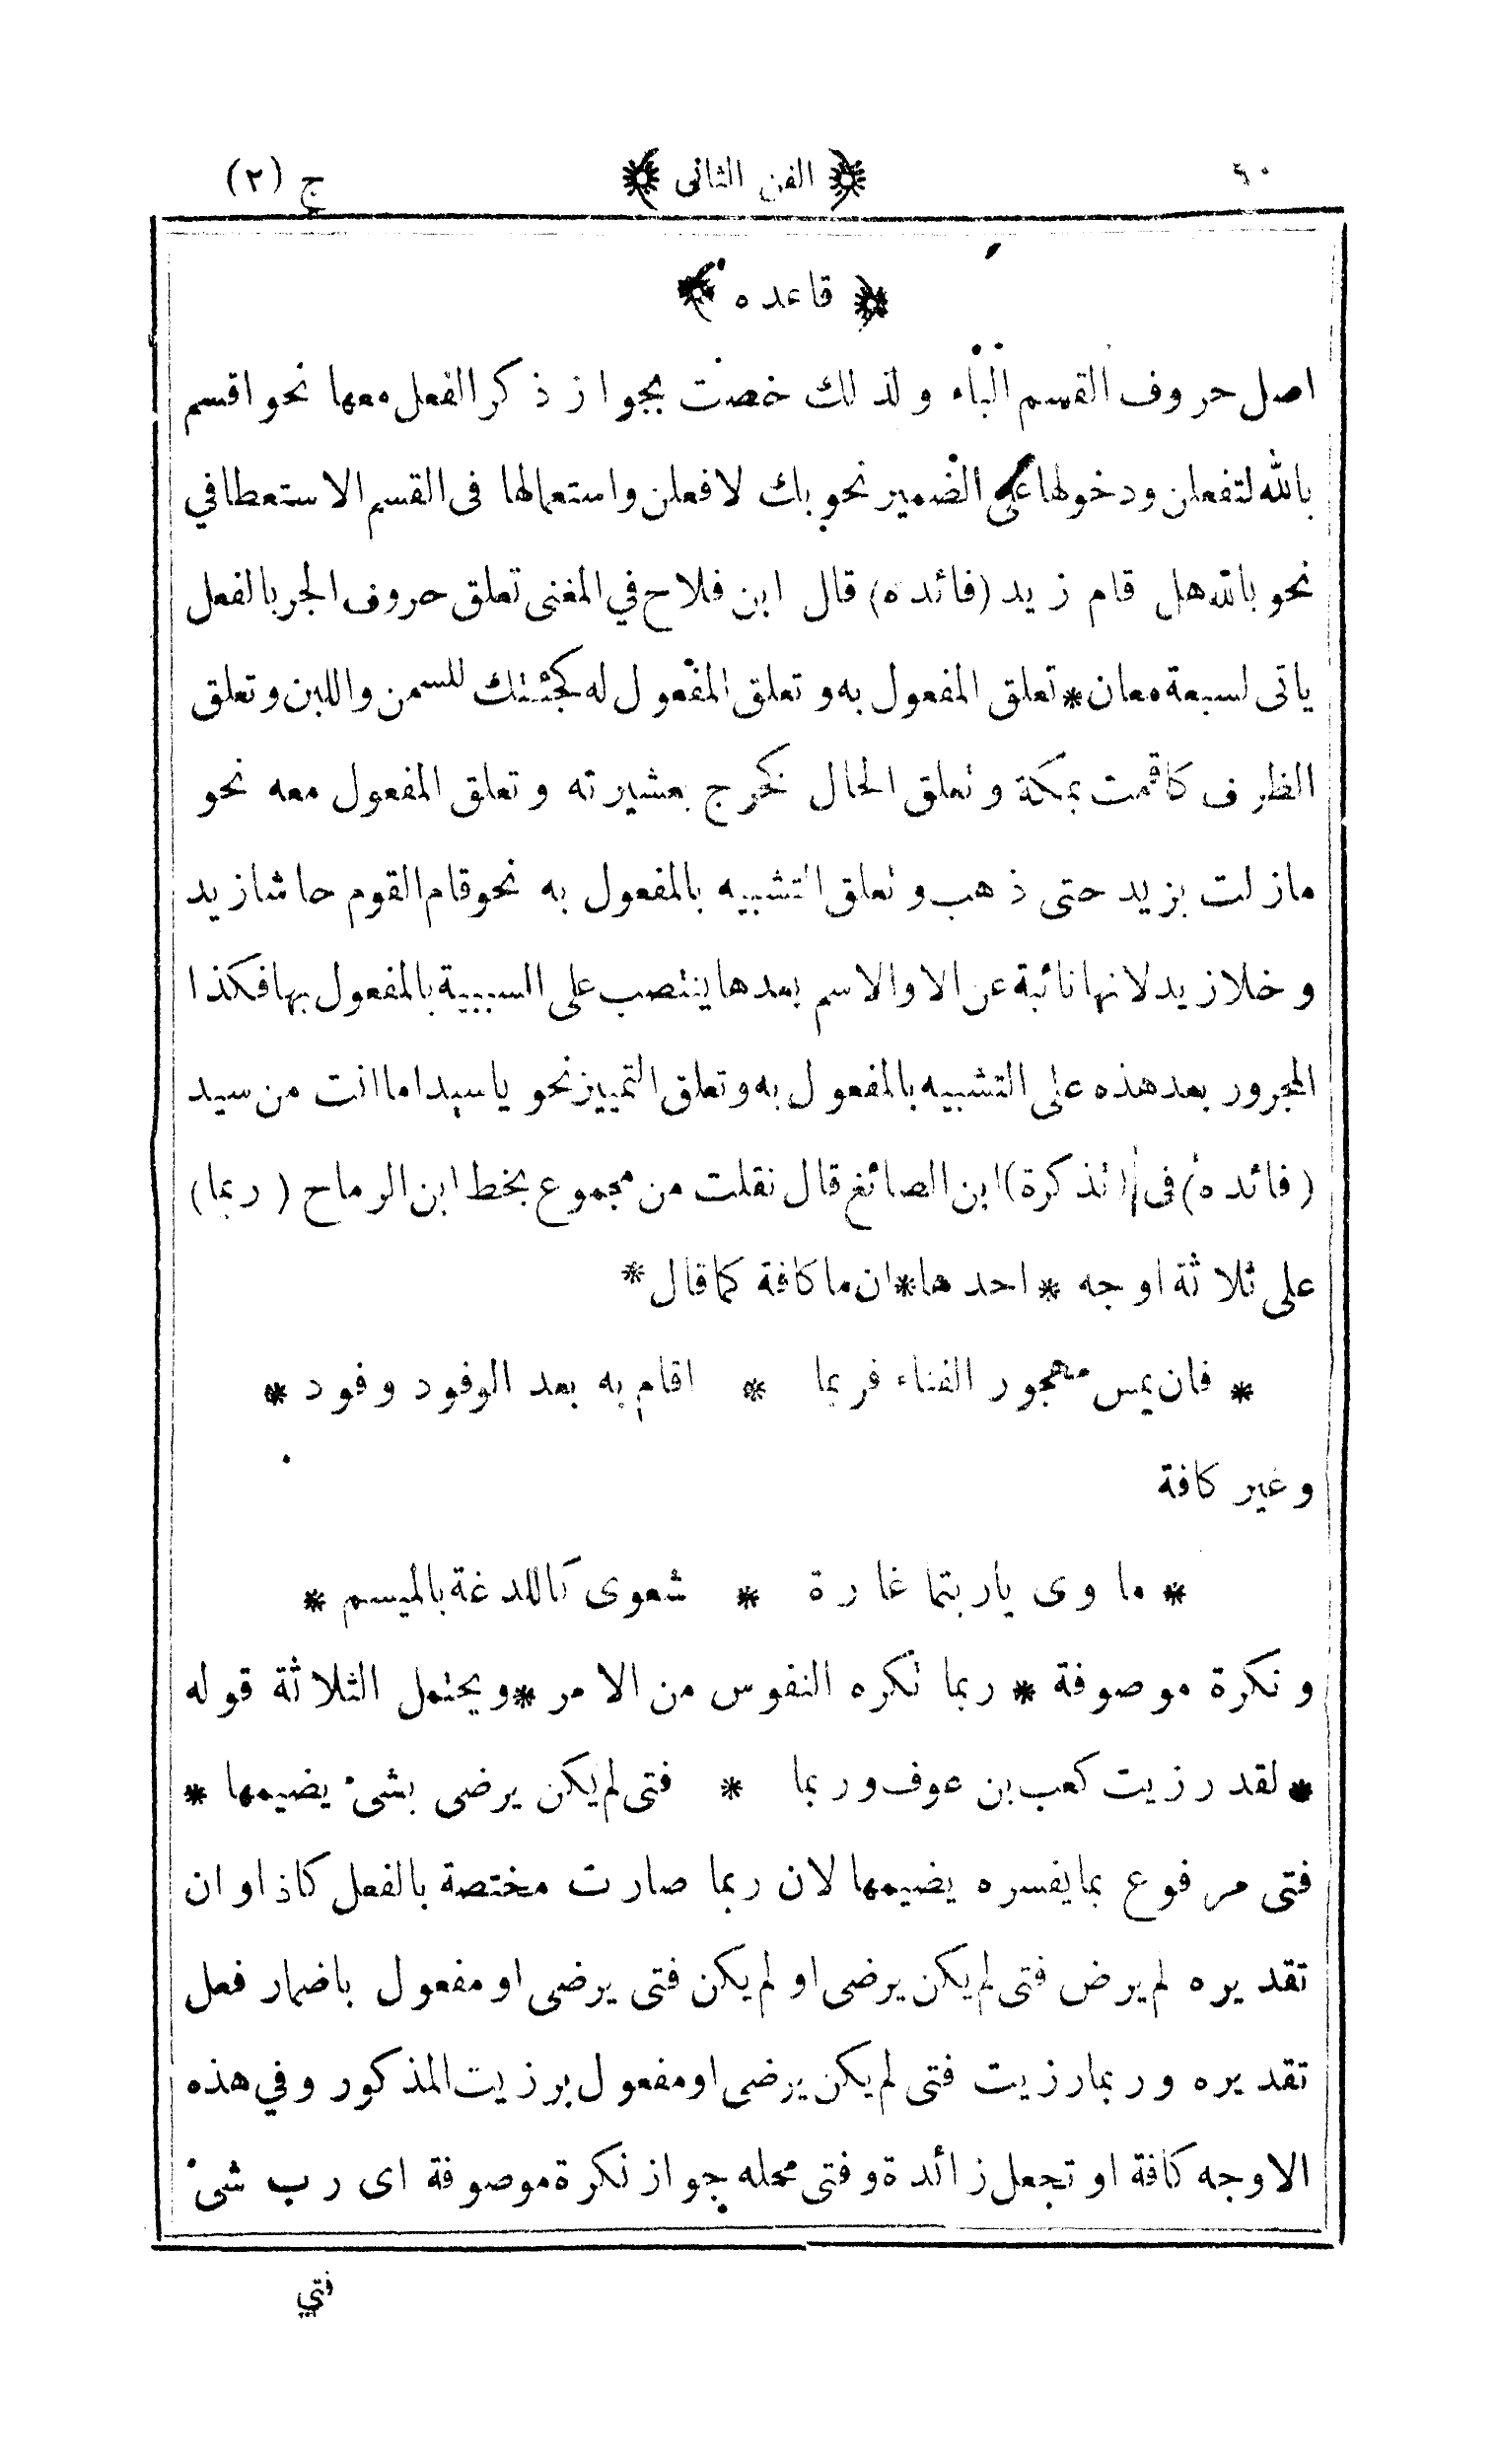 ٦٠ ﴿ الفن الثانى ﴾ ج (٢)
﴿ قاعده ﴾
اصل حروف القسم الباء ولذلك خصت بجواز ذكر الفعل معها نحو اقسم
بالله لتفعلن ودخولها على الضمير نحو بك لافعلن واستعمالها فى القسم الاستعطافي
نحو بالله هل قام زيد (فائده) قال ابن فلاح في المغنى تعلق حروف الجر بالفعل
ياتى لسبعة معان * تعلق المفعول به و تعلق المفعول له كجئتك للسمن واللبن وتعلق
الظرف كاقمت بمكة و تعلق الحال كخرج بعشيرته و تعلق المفعول معه نحو
مازلت بزيد حتى ذهب و تعلق التشبيه بالمفعول به نحو قام القوم حاشا زيد
و خلا زيد لانها نائبة عن الا والاسم بعدها ينتصب على السببية بالمفعول بها فكذا
المجرور بعد هذه على التشبيه بالمفعول به و تعلق التمييز نحو يا سيدا ما انت من سيد
(فائده) فى (تذكرة) ابن الصائغ قال نقلت من مجموع بخط ابن الرماح (ربما)
على ثلاثة اوجه * احدها * ان ما كافة كما قال *
* فان يمس مهجور الفناء فربما * اقام به بعد الوفود وفود *
و غير كافة
* ماوى ياربتما غارة * شعوى كاللدغة بالميسم *
و نكرة موصوفة * ربما تكره النفوس من الامر * ويحتمل الثلاثة قوله
* لقد رزيت كعب بن عوف و ربما * فتى لم يكن يرضى بشئ يضيمها *
فتى مرفوع بما يفسره يضيمها لان ربما صارت مختصة بالفعل كاذا و ان
تقديره لم يرض فتى لم يكن يرضى او لم يكن فتى يرضى او مفعول باضمار فعل
تقديره و ربما رزيت فتى لم يكن يرضى او مفعول برزيت المذكور وفي هذه
الاوجه كافة او تجعل زائدة و فتى محله جو از نكرة موصوفة اى رب شئ
فتي